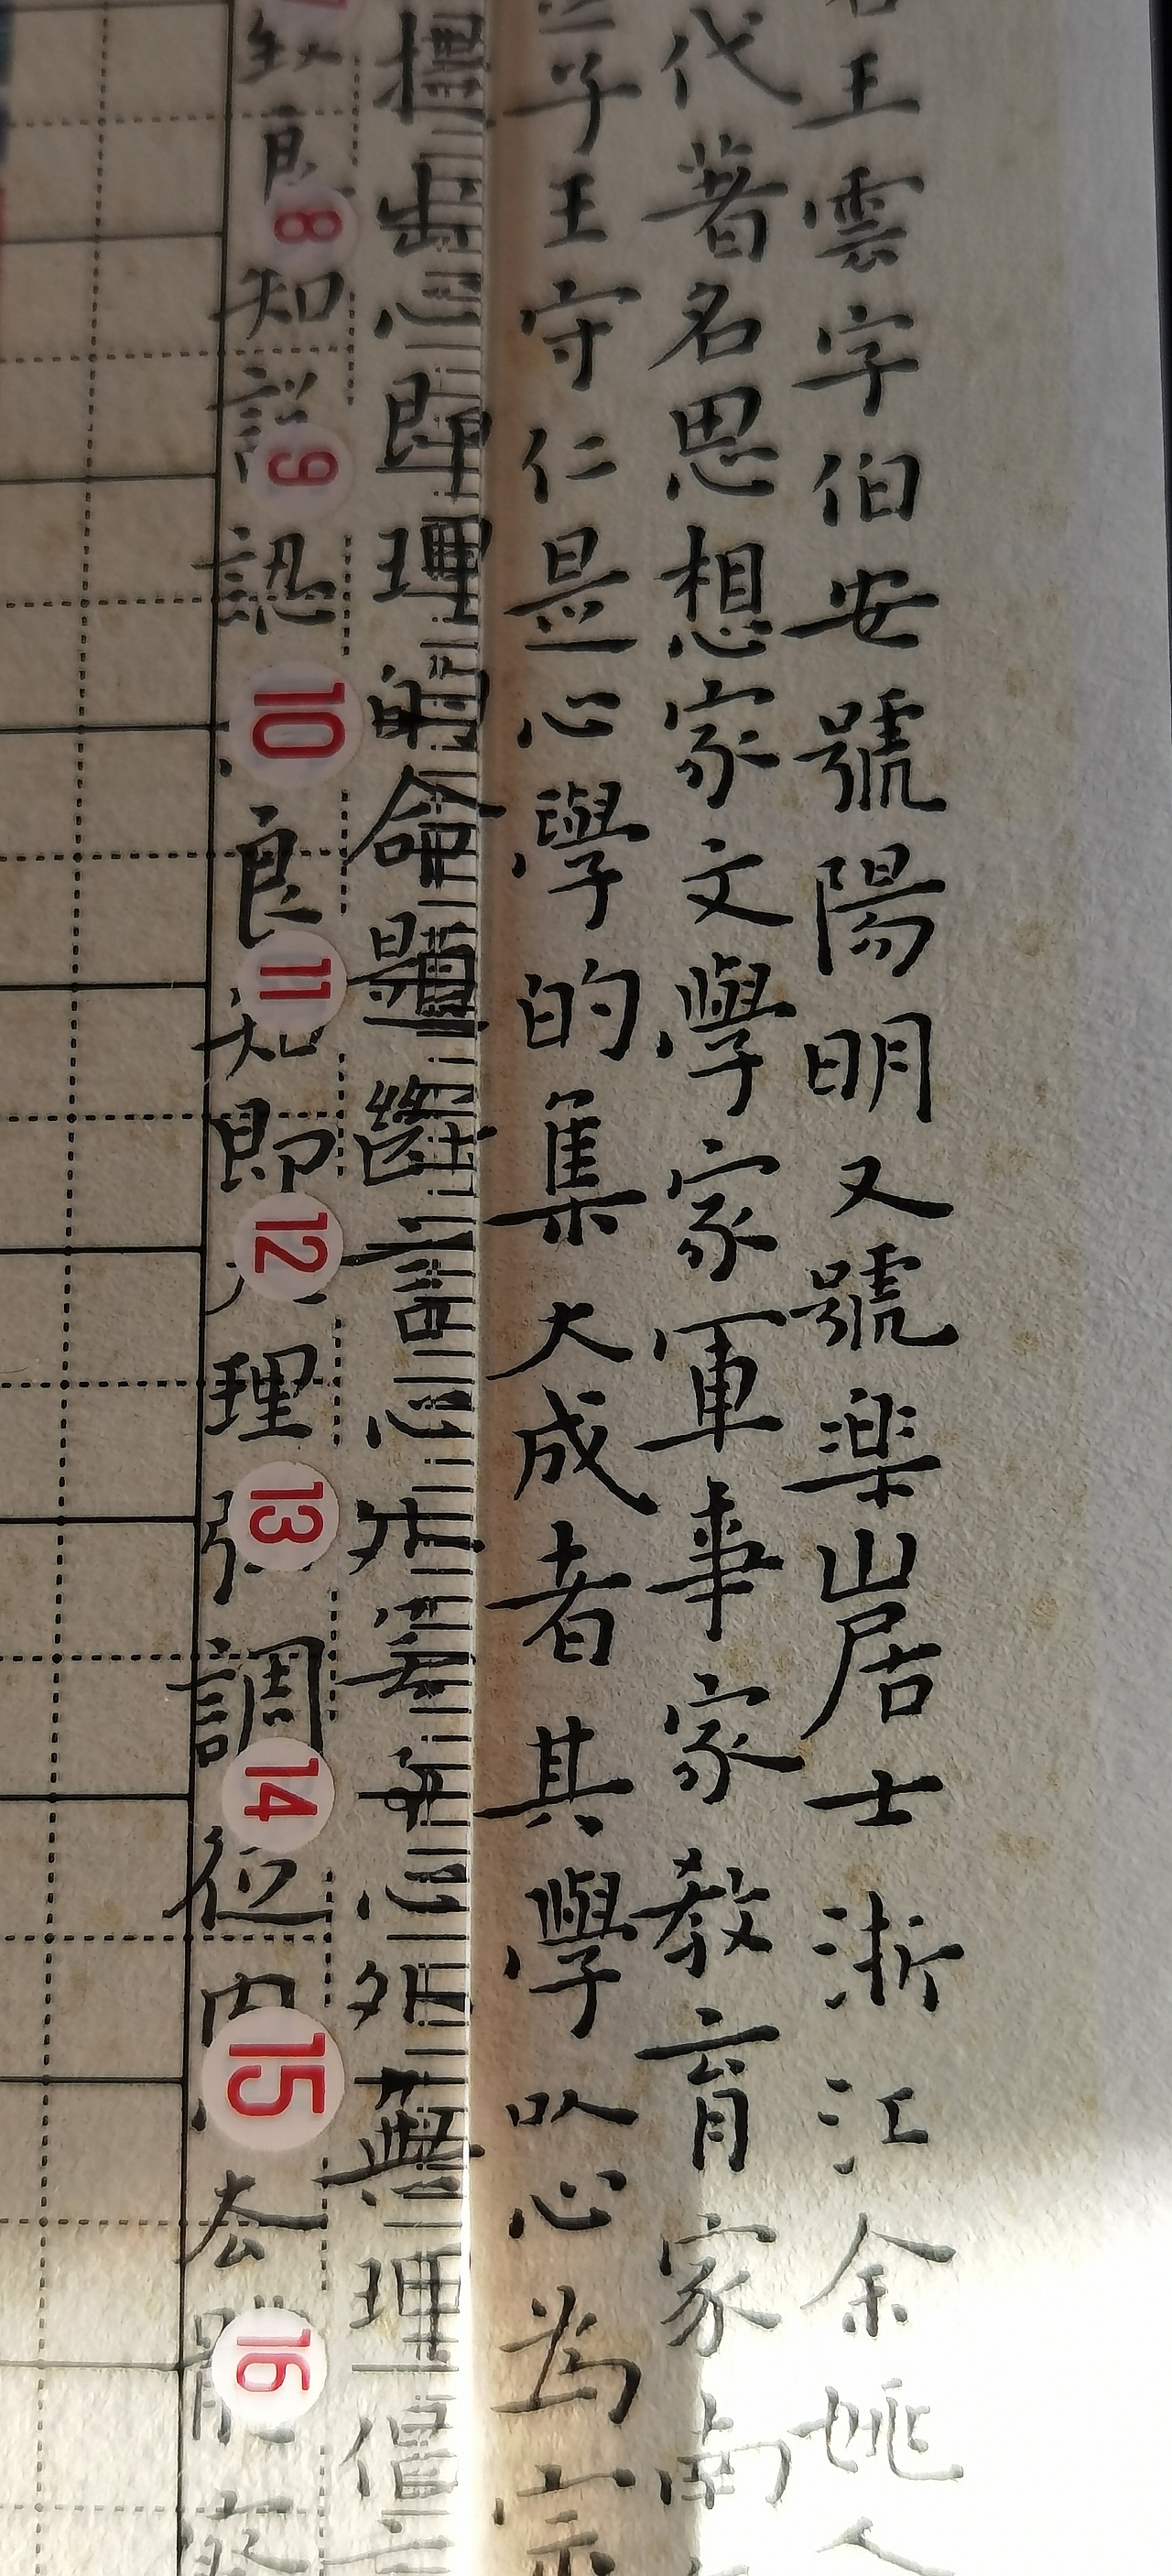 王雲字伯安號陽明又號楽山居士浙江余姚人
代著名思想家文學家軍事家教育家南
子王守仁是心學的集大成者其學以心為宗
提出心即理的命題斷言心外心外無理倡
致良知說認良知即理強調從内去
8
9
10
11
12
13
14
15
16